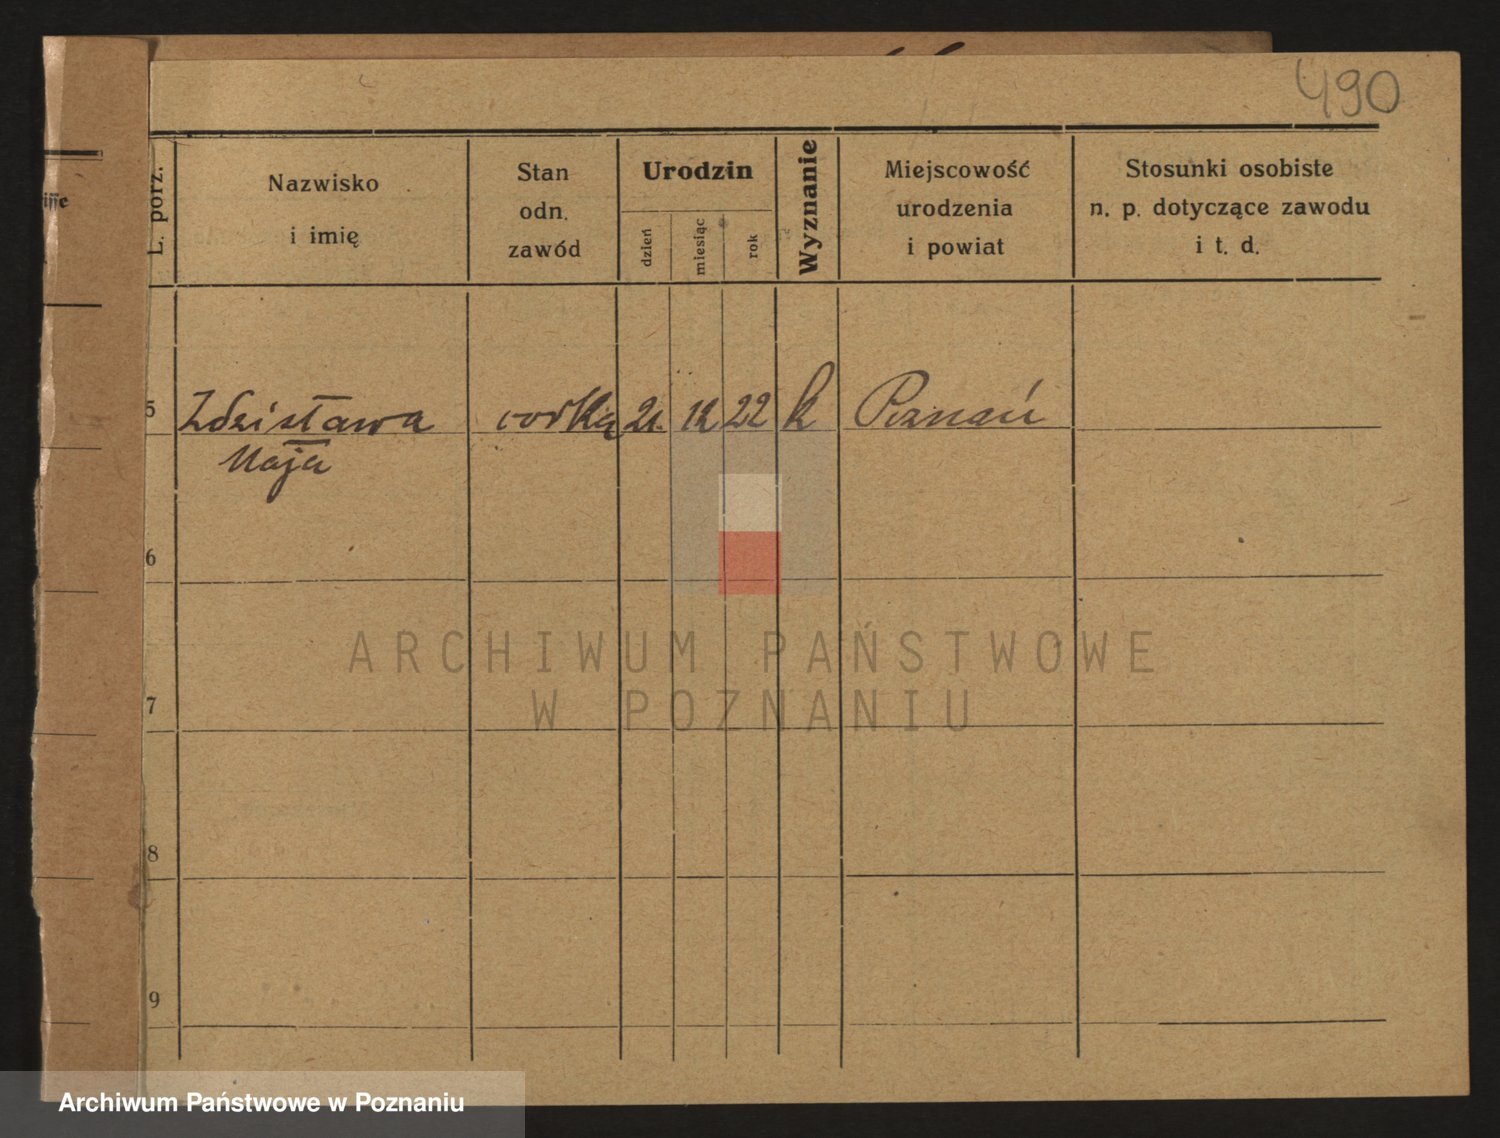 490
L. porz.
Nazwisko
i imię
Stan
odn.
zawód
Urodzin
dzień
miesiąc
rok
Wyznanie
Miejscowość
urodzenia
i powiat
Stosunki osobiste
n. p. dotyczące zawodu
i t. d.
5 Zdzisława córka 21. 12 22 k Poznań
Maja
6
7
8
9
ARCHIWUM PAŃSTWOWE
W POZNANIU
Archiwum Państwowe w Poznaniu